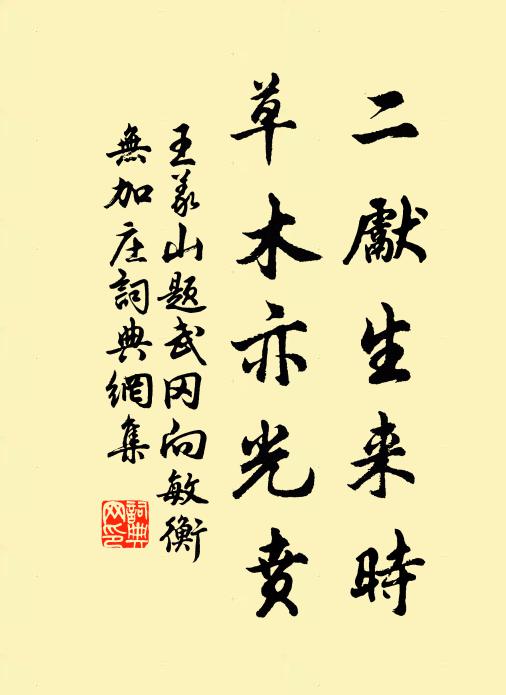 二獻生来時
草木亦光賁
王義山題武冈向敏衡
無加庄詞典網集
詞典网印